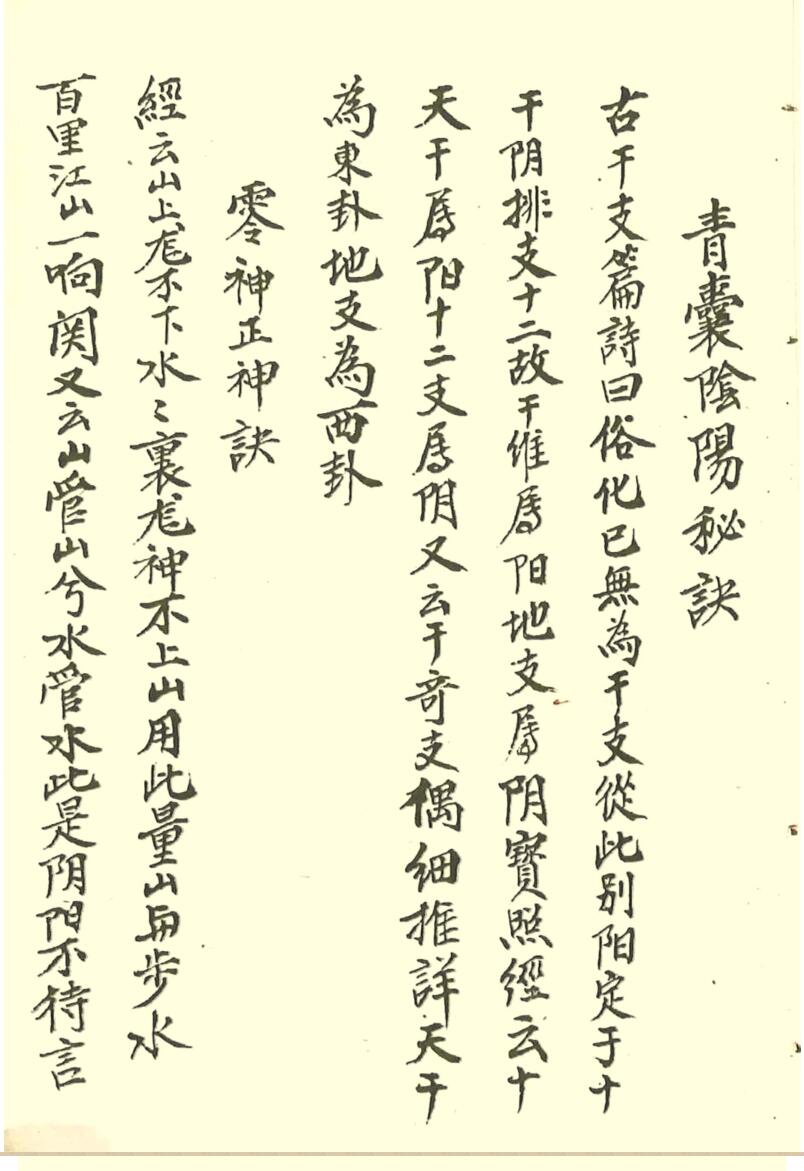 青囊陰陽秘訣
古干支篇詩曰俗化已無為干支從此别阳定于十
干阴排支十二故干维属阳地支属阴寳照經云十
天干属阳十二支属阴又云干竒支偶细推詳天干
為東卦地支為西卦
零神正神訣
經云山上龙不下水〻裏龙神不上山用此量山与步水
百里江山一响関又云山管山兮水管水此是阴阳不待言